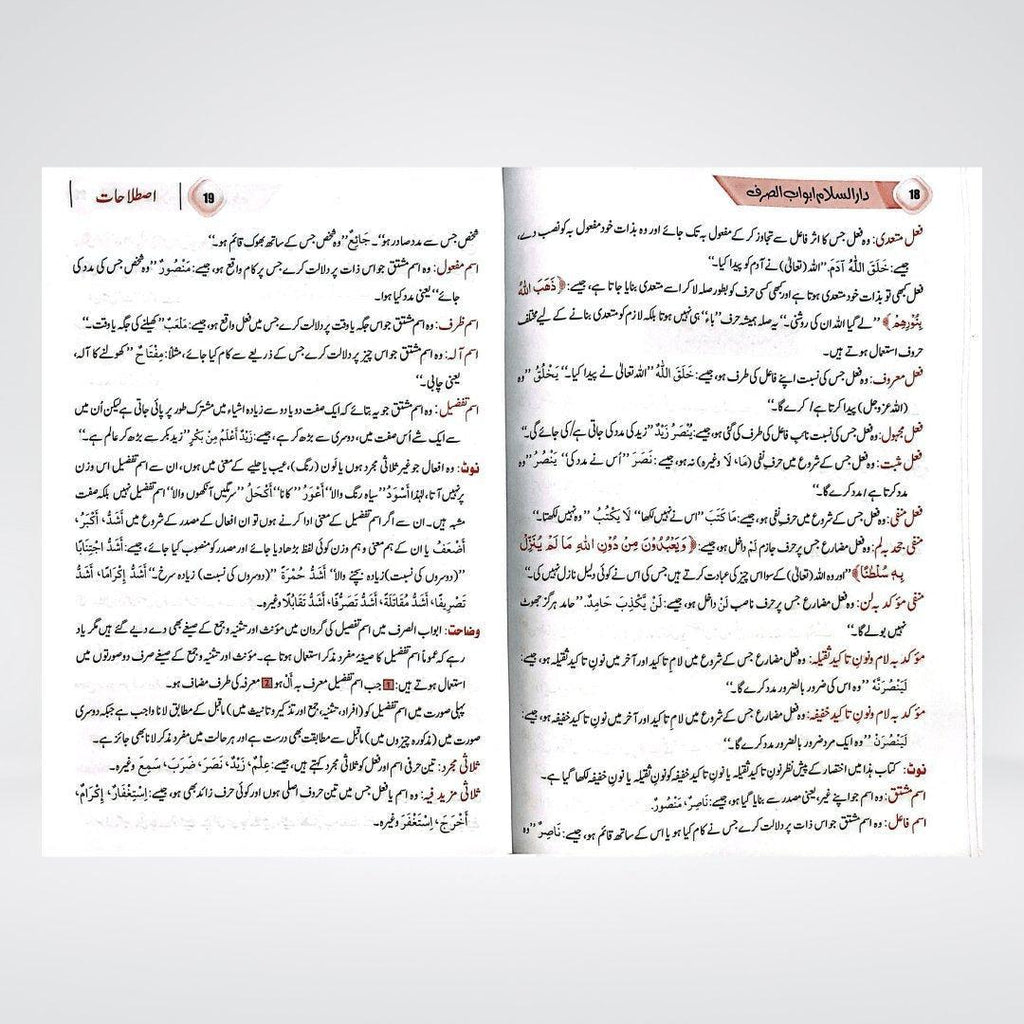 18
دارالسلام ابواب الصرف
فعل متعدی: وہ فعل جس کا اثر فاعل سے تجاوز کر کے مفعول بہ تک جائے اور وہ بذات خود مفعول بہ کو نصب دے،
جیسے: خَلَقَ اللّٰهُ آدَمَ. ”اللہ (تعالیٰ) نے آدم کو پیدا کیا۔“
فعل کبھی تو بذات خود متعدی ہوتا ہے اور کبھی کسی حرف کو بطور صلہ لا کر اسے متعدی بنایا جاتا ہے، جیسے: ﴿ذَهَبَ اللّٰهُ
بِنُوْرِهِمْ﴾ ”لے گیا اللہ ان کی روشنی۔“ یہ صلہ ہمیشہ حرف ”باء“ ہی نہیں ہوتا بلکہ لازم کو متعدی بنانے کے لیے مختلف
حروف استعمال ہوتے ہیں۔
فعل معروف: وہ فعل جس کی نسبت اپنے فاعل کی طرف ہو، جیسے: خَلَقَ اللّٰهُ ”اللہ تعالیٰ نے پیدا کیا۔“ يَخْلُقُ ”وہ
(اللہ عزوجل) پیدا کرتا ہے/ کرے گا۔“
فعل مجہول: وہ فعل جس کی نسبت نائب فاعل کی طرف کی گئی ہو، جیسے: يُنْصَرُ زَيْدٌ ”زید کی مدد کی جاتی ہے/ کی جائے گی۔“
فعل مثبت: وہ فعل جس کے شروع میں حرف نفی (مَا، لَا وغیرہ) نہ ہو، جیسے: نَصَرَ ”اُس نے مدد کی“ يَنْصُرُ ”وہ
مدد کرتا ہے / مدد کرے گا۔“
فعل منفی: وہ فعل جس کے شروع میں حرف نفی ہو، جیسے: مَا كَتَبَ ”اس نے نہیں لکھا“ لَا يَكْتُبُ ”وہ نہیں لکھتا۔“
نفی جحد بہ لم: وہ فعل مضارع جس پر حرف جازم لَمْ داخل ہو، جیسے: ﴿وَيَعْبُدُوْنَ مِنْ دُوْنِ اللّٰهِ مَا لَمْ يُنَزِّلْ
بِهٖ سُلْطٰنًا﴾ ”اور وہ اللہ (تعالیٰ) کے سوا اس چیز کی عبادت کرتے ہیں جس کی اس نے کوئی دلیل نازل نہیں کی۔“
نفی مؤکد بہ لن: وہ فعل مضارع جس پر حرف ناصب لَنْ داخل ہو، جیسے: لَنْ يَّكْذِبَ حَامِدٌ. ”حامد ہرگز جھوٹ
نہیں بولے گا۔“
مؤکد بہ لام ونون تاکید ثقیلہ: وہ فعل مضارع جس کے شروع میں لام تاکید اور آخر میں نون تاکید ثقیلہ ہو، جیسے:
لَيَنْصُرَنَّهٗ ”وہ اس کی ضرور بالضرور مدد کرے گا۔“
مؤکد بہ لام ونون تاکید خفیفہ: وہ فعل مضارع جس کے شروع میں لام تاکید اور آخر میں نون تاکید خفیفہ ہو، جیسے:
لَيَنْصُرَنْ ”وہ ایک مرد ضرور بالضرور مدد کرے گا۔“
نوٹ: کتاب ہذا میں اختصار کے پیش نظر نون تاکید ثقیلہ یا نون تاکید خفیفہ کو نون ثقیلہ یا نون خفیفہ لکھا گیا ہے۔
اسم مشتق: وہ اسم جو اپنے غیر، یعنی مصدر سے بنایا گیا ہو، جیسے: نَاصِرٌ، مَنْصُورٌ.
اسم فاعل: وہ اسم مشتق جو اس ذات پر دلالت کرے جس نے کام کیا ہو یا اس کے ساتھ قائم ہو، جیسے: نَاصِرٌ ”وہ
19
اصطلاحات
شخص جس سے مدد صادر ہو“۔ جَائِعٌ ”وہ شخص جس کے ساتھ بھوک قائم ہو۔“
اسم مفعول: وہ اسم مشتق جو اس ذات پر دلالت کرے جس پر کام واقع ہو، جیسے: مَنْصُورٌ ”وہ شخص جس کی مدد کی
جائے“ یعنی مدد کیا ہوا۔
اسم ظرف: وہ اسم مشتق جو اس جگہ یا وقت پر دلالت کرے جس میں فعل واقع ہو، جیسے: مَلْعَبٌ ”کھیلنے کی جگہ یا وقت۔“
اسم آلہ: وہ اسم مشتق جو اس چیز پر دلالت کرے جس کے ذریعے سے کام کیا جائے، مثلاً: مِفْتَاحٌ ”کھولنے کا آلہ،
یعنی چابی۔“
اسم تفضیل: وہ اسم مشتق جو یہ بتائے کہ ایک صفت دو یا دو سے زیادہ اشیاء میں مشترک طور پر پائی جاتی ہے لیکن اُن میں
سے ایک شے اُس صفت میں، دوسری سے بڑھ کر ہے، جیسے: زَيْدٌ أَعْلَمُ مِنْ بَكْرٍ ”زید بکر سے بڑھ کر عالم ہے۔“
نوٹ: وہ افعال جو غیر ثلاثی مجرد ہوں یا لون (رنگ)، عیب یا حلیے کے معنی میں ہوں، ان سے اسم تفضیل اس وزن
پر نہیں آتا، لہٰذا أَسْوَدُ ”سیاہ رنگ والا“ أَعْوَرُ ”کانا“ أَكْحَلُ ”سرمگیں آنکھوں والا“ اسم تفضیل نہیں بلکہ صفت
مشبہ ہیں۔ ان سے اگر اسم تفضیل کے معنی ادا کرنے ہوں تو ان افعال کے مصدر کے شروع میں أَشَدُّ، أَكْبَرُ،
أَضْعَفُ یا ان کے ہم معنی و ہم وزن کوئی لفظ بڑھا دیا جائے اور مصدر کو منصوب کیا جائے، جیسے: أَشَدُّ اجْتِنَابًا
”(دوسروں کی نسبت) زیادہ بچنے والا“ أَشَدُّ حُمْرَةً ”(دوسروں کی نسبت) زیادہ سرخ۔“ أَشَدُّ إِكْرَامًا، أَشَدُّ
تَصْرِيفًا، أَشَدُّ مُقَاتَلَةً، أَشَدُّ تَصَرُّفًا، أَشَدُّ تَقَابُلًا وغیرہ۔
وضاحت: ابواب الصرف میں اسم تفضیل کی گردان میں مؤنث اور تثنیہ و جمع کے صیغے بھی دے دیے گئے ہیں مگر یاد
رہے کہ عموماً اسم تفضیل کا صیغۂ مفرد مذکر استعمال ہوتا ہے۔ مؤنث اور تثنیہ و جمع کے صیغے صرف دو صورتوں میں
استعمال ہوتے ہیں: 1 جب اسم تفضیل معرف بہ أَلْ ہو 2 معرفہ کی طرف مضاف ہو۔
پہلی صورت میں اسم تفضیل کو (افراد، تثنیہ، جمع اور تذکیر و تانیث میں) ماقبل کے مطابق لانا واجب ہے جبکہ دوسری
صورت میں (مذکورہ چیزوں میں) ماقبل سے مطابقت بھی درست ہے اور ہر حالت میں مفرد مذکر لانا بھی جائز ہے۔
ثلاثی مجرد: تین حرفی اسم اور فعل کو ثلاثی مجرد کہتے ہیں، جیسے: عِلْمٌ، زَيْدٌ، نَصَرَ، ضَرَبَ، سَمِعَ وغیرہ۔
ثلاثی مزید فیہ: وہ اسم یا فعل جس میں تین حروف اصلی ہوں اور کوئی حرف زائد بھی ہو، جیسے: اِسْتِغْفَارٌ، إِكْرَامٌ،
أَخْرَجَ، اِسْتَغْفَرَ وغیرہ۔